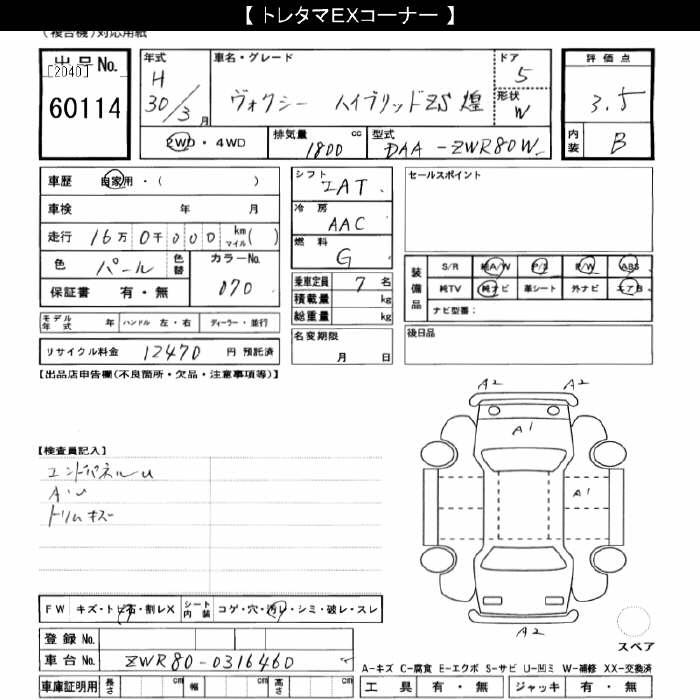 【 トレタマEXコーナー 】
(複合機)対応用紙
出品No.
[2040]
60114
年式
H
30/3月
車名・グレード
ヴォクシー ハイブリッドZS 煌
ドア
5
形状
W
評価点
3.5
内装
B
2WD・4WD
排気量
1800 cc
型式
DAA-ZWR80W
車歴 自家用・( )
車検 年 月
走行 16万0千000 km マイル ( )
色 パール 色替
カラーNo.
070
保証書 有・無
シフト
IAT
冷房
AAC
燃料
G
乗車定員 7名
積載量 kg
総重量 kg
名変期限
月 日
セールスポイント
装備品
S/R 純A/W P/S P/W ABS
純TV 純ナビ 革シート 外ナビ エアB
ナビ型番:
後日品
モデル年式 年 ハンドル 左・右 ディーラー・並行
リサイクル料金 12470 円 預託済
【出品店申告欄(不良箇所・欠品・注意事項等)】
【検査員記入】
エンドパネルU
A・U
トリムキズ
A2 A2
A1
A1
A2
スペア
FW キズ・トビ石・割レX
シート内装 コゲ・穴・汚レ・シミ・破レ・スレ
登録No.
車台No. ZWR80-0316460
車庫証明用 長さ cm 幅 cm 高さ cm
A-キズ C-腐食 E-エクボ S-サビ U-凹ミ W-補修 XX-交換済
工具 有・無 ジャッキ 有・無